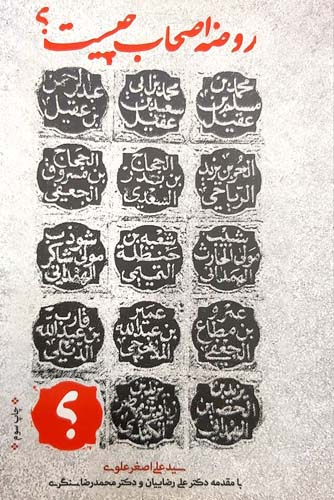 روضه اصحاب چیست؟
محمد بن
مسلم بن
عقیل
محمد بن ابی
سعید بن
عقیل
عبدالرحمن
بن عقیل
الحر بن یزید
الریاحی
الحجاج
بن بدر
السعدی
الحجاج
بن مسروق
الجعفی
شبیب
مولی الحارث
الهمدانی
حنظلة
التمیمی
شوذب
مولی شاکر
الهمدانی
عمرو
بن مطاع
الجعفی
عمیر
بن عبدالله
المذحجی
قارب
بن عبدالله
الدیلمی
یزید بن
الحصین
یزید بن
زیاد بن
؟
چاپ سوم
سید علی اصغر علوی
با مقدمه دکتر علی رضاییان و دکتر محمدرضا سنگری